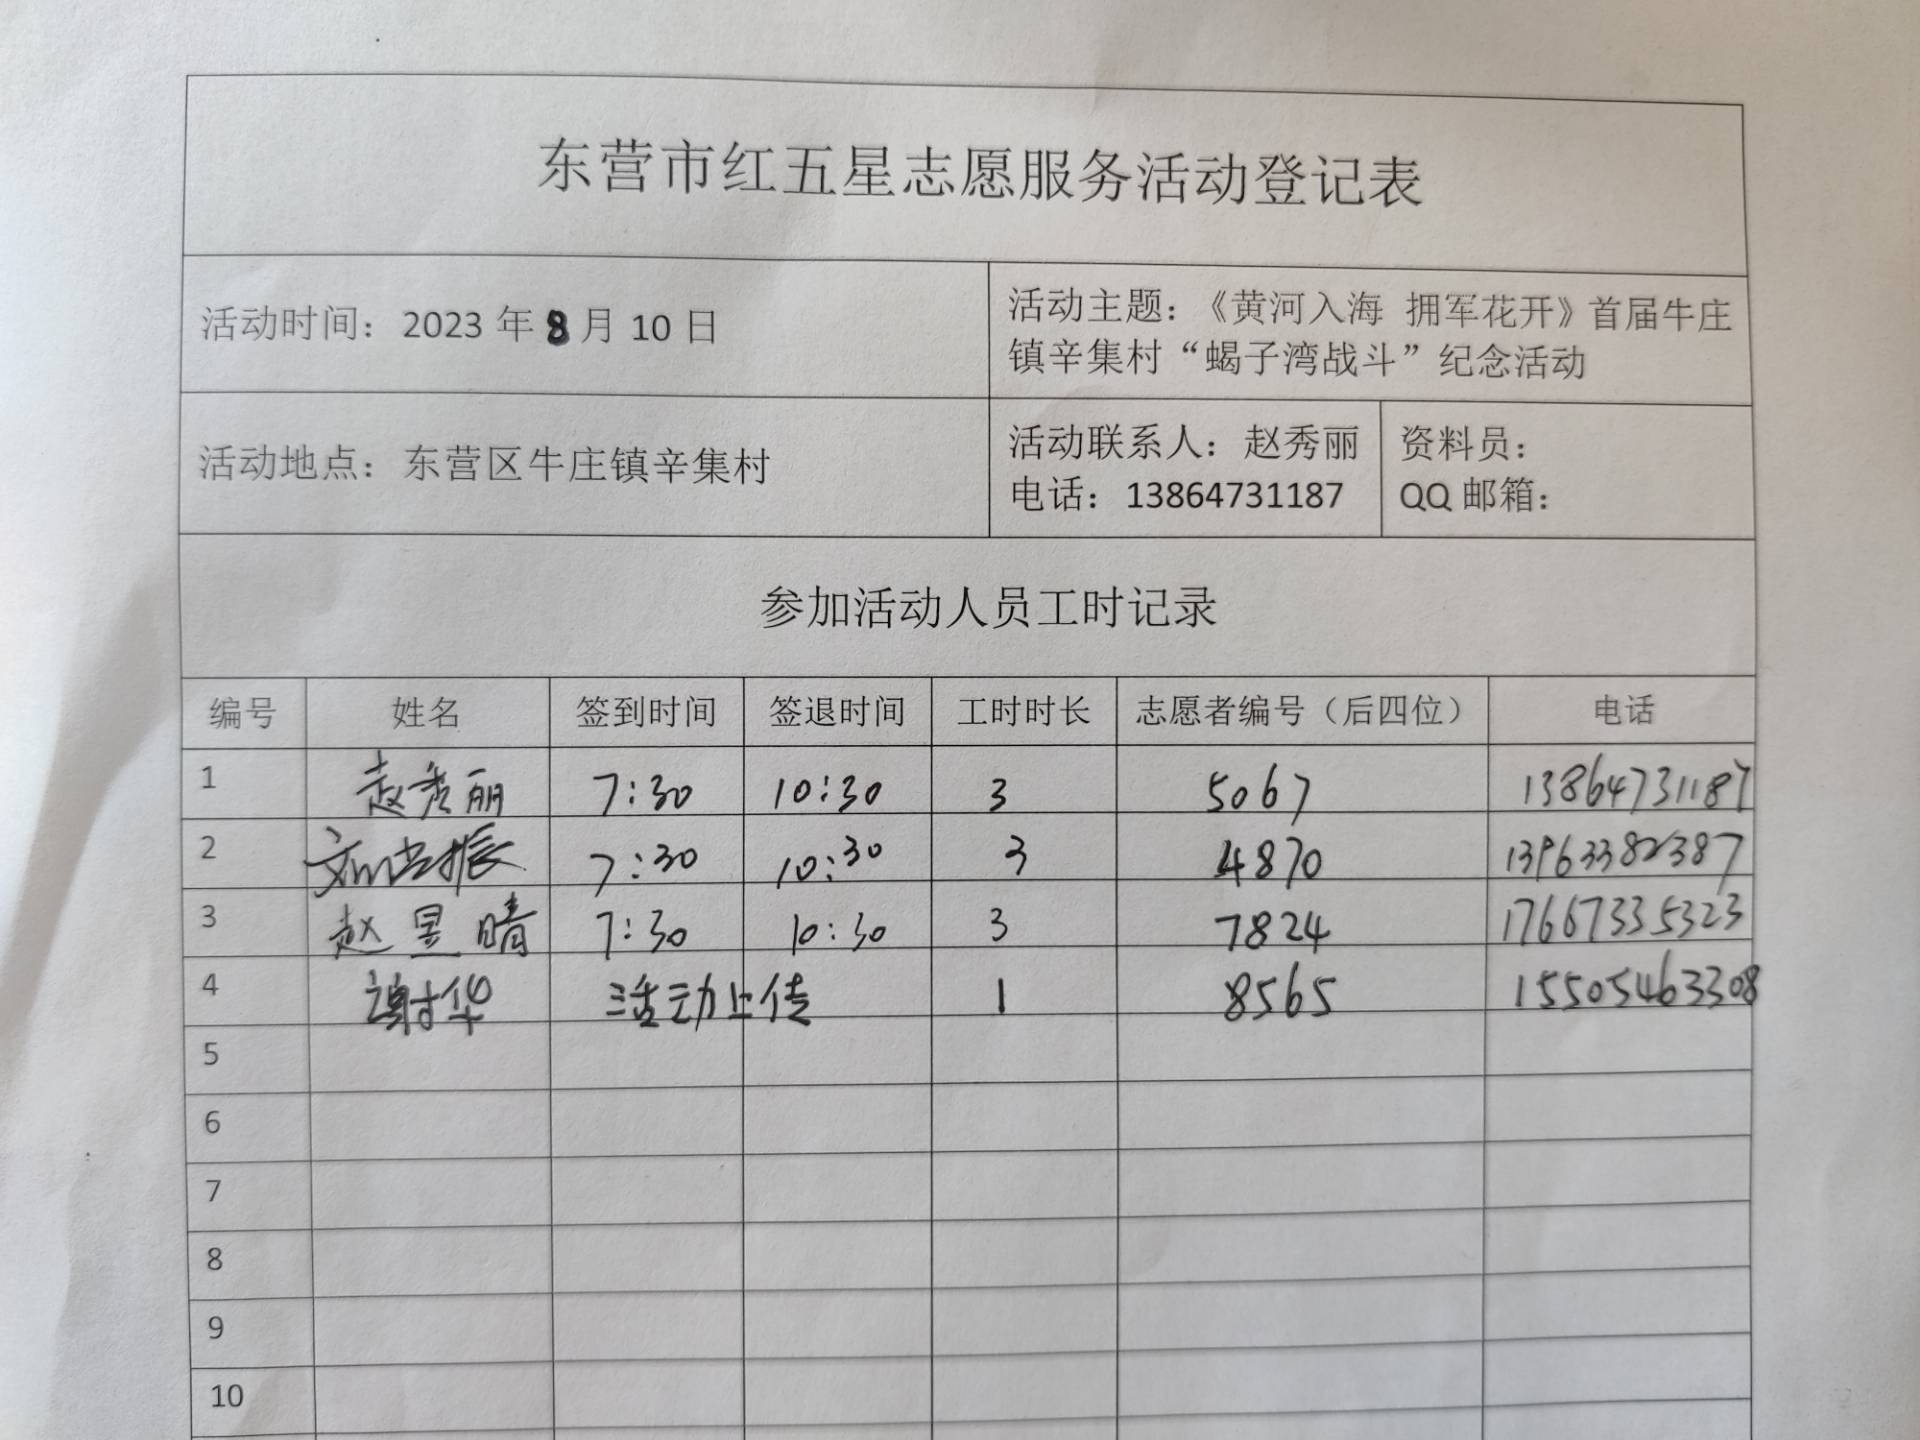 东营市红五星志愿服务活动登记表
活动时间：2023 年 8 月 10 日
活动主题：《黄河入海 拥军花开》首届牛庄
镇辛集村“蝎子湾战斗”纪念活动
活动地点：东营区牛庄镇辛集村
活动联系人：赵秀丽
电话：13864731187
资料员：
QQ 邮箱：
参加活动人员工时记录
编号 姓名 签到时间 签退时间 工时时长 志愿者编号（后四位） 电话
1 赵秀丽 7:30 10:30 3 5067 13864731187
2 7:30 10:30 3 4870 13963382387
3 赵昱晴 7:30 10:30 3 7824 17667335323
4 谢华 活动上传 1 8565 15505463308
5
6
7
8
9
10